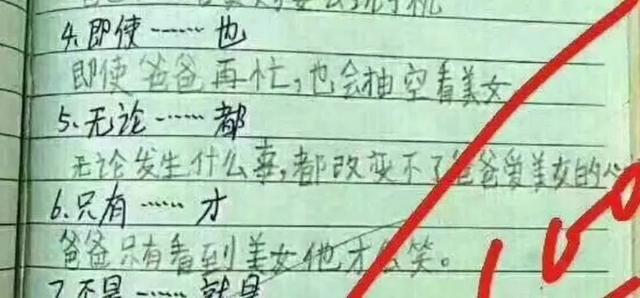 4.即使……也
即使爸爸再忙,也会抽空看美女
5.无论……都
无论发生什么事,都改变不了爸爸爱美女的心
6.只有……才
爸爸只有看到美女他才会笑。
7.不是……就是
100